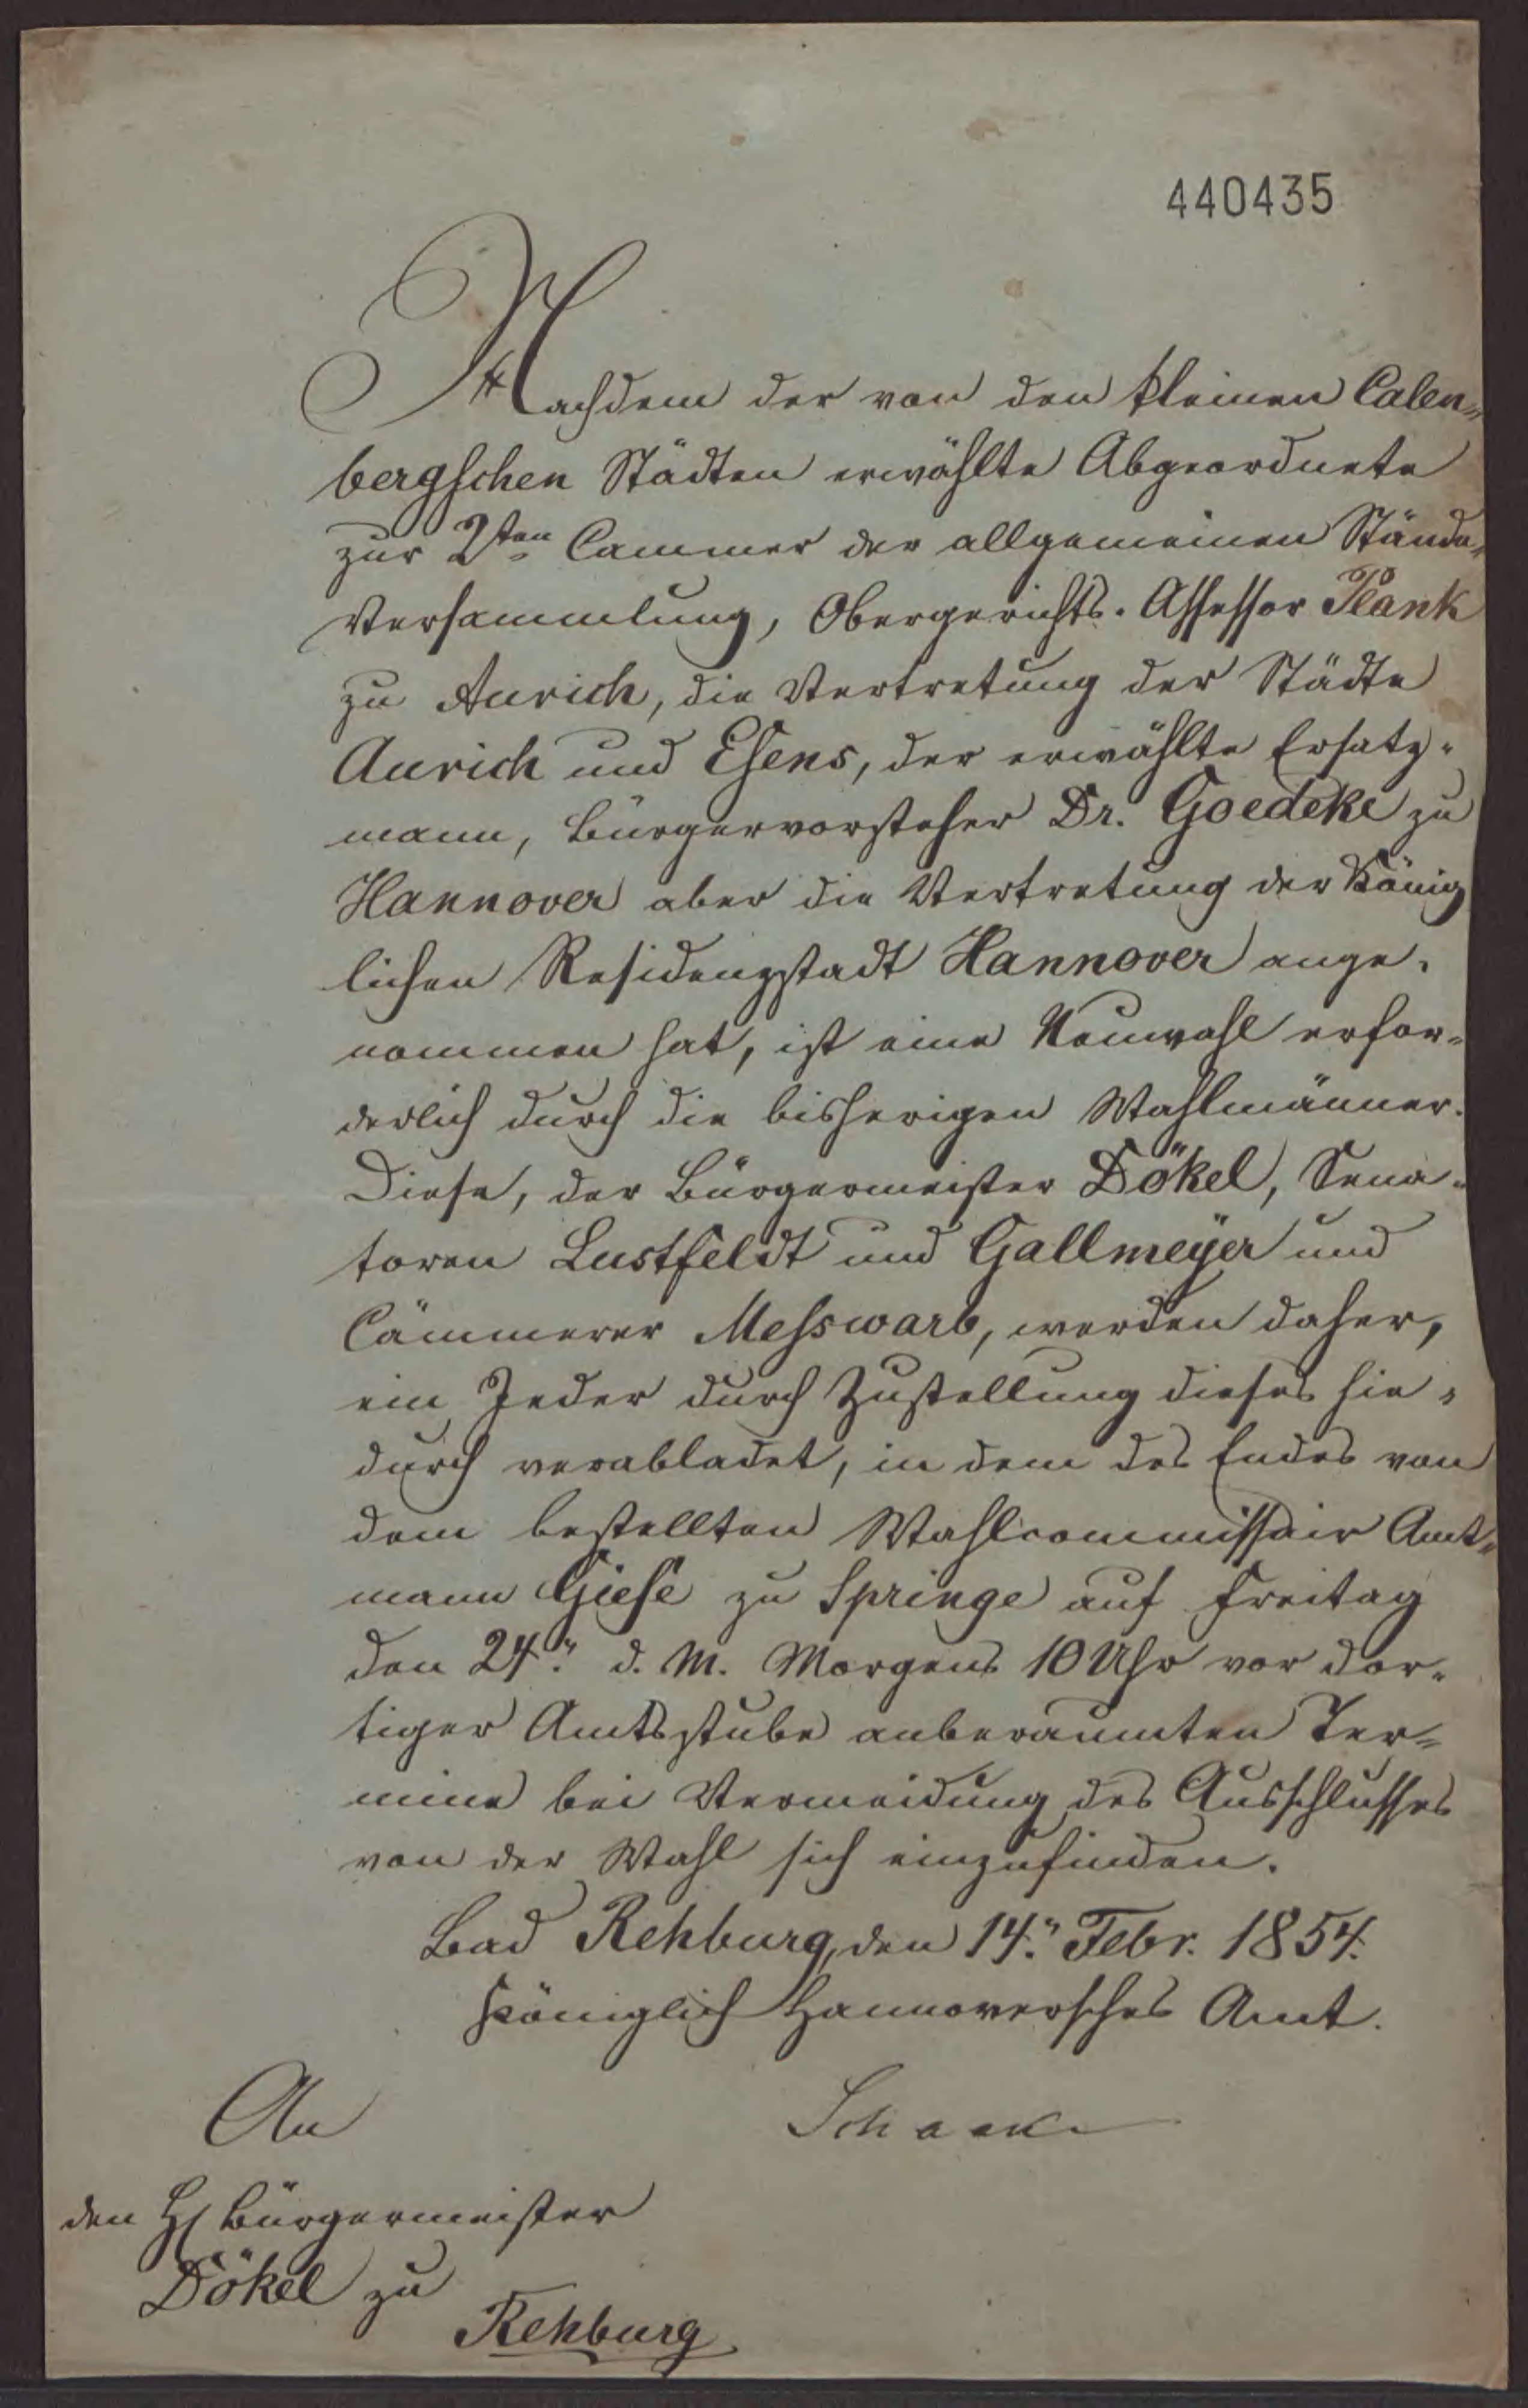 440435
Nachdem der von den kleinen Calen=
bergschen Städten erwählte Abgeordnete
zur 2ten Cammer der allgemeinen Stände=
Versammlung, Obergerichts-Assessor Plank
zu Aurich, die Vertretung der Städte
Aurich und Esens, der erwählte Ersatz=
mann, Bürgervorsteher Dr. Goedeke zu
Hannover aber die Vertretung der König
lichen Residenzstadt Hannover ange=
nommen hat, ist eine Neuwahl erfor=
derlich durch die bisherigen Wahlmänner.
Diese, der Bürgermeister Dökel, Sena=
toren Lustfeldt und Gallmeÿer und
Cämmerer Messwarb, werden daher,
ein Jeder durch Zustellung dieses hie=
durch verabladet, in dem des Endes von
dem bestellten Wahlcommissair Amt=
mann Giese zu Springe auf Freitag
den 24." d. M. Morgens 10 Uhr vor dor=
tiger Amtsstube anberaumten Ter=
mine bei Vermeidung des Ausschlusses
von der Wahl sich einzufinden.
Bad Rehburg, den 14." Febr. 1854.
Königlich Hannoversches Amt.
An
den H Bürgermeister
Dökel zu
Rehburg